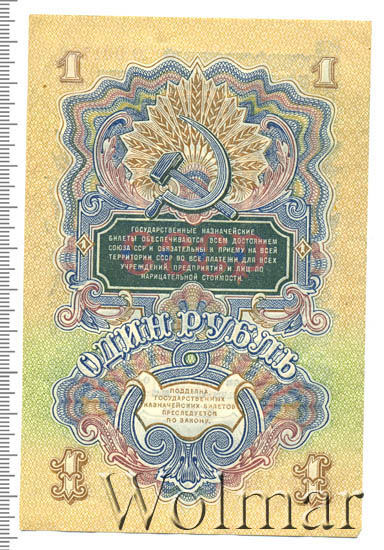 1 1
ГОСУДАРСТВЕННЫЕ КАЗНАЧЕЙСКИЕ
БИЛЕТЫ ОБЕСПЕЧИВАЮТСЯ ВСЕМ ДОСТОЯНИЕМ
СОЮЗА ССР И ОБЯЗАТЕЛЬНЫ К ПРИЕМУ НА ВСЕЙ
1 ТЕРРИТОРИИ СССР ВО ВСЕ ПЛАТЕЖИ ДЛЯ ВСЕХ 1
УЧРЕЖДЕНИЙ, ПРЕДПРИЯТИЙ И ЛИЦ ПО
НАРИЦАТЕЛЬНОЙ СТОИМОСТИ.
ОДИН РУБЛЬ
ПОДДЕЛКА
ГОСУДАРСТВЕННЫХ
КАЗНАЧЕЙСКИХ БИЛЕТОВ
ПРЕСЛЕДУЕТСЯ
ПО ЗАКОНУ.
1 1
Wolmar